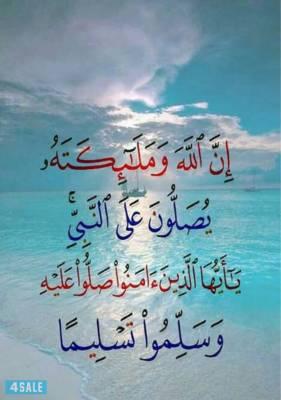 إِنَّ ٱللَّهَ وَمَلَـٰٓئِكَتَهُۥ
يُصَلُّونَ عَلَى ٱلنَّبِىِّۚ
يَـٰٓأَيُّهَا ٱلَّذِينَ ءَامَنُوا۟ صَلُّوا۟ عَلَيْهِ
وَسَلِّمُوا۟ تَسْلِيمًا
4SALE